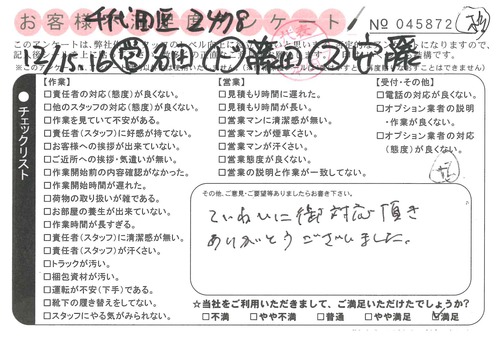 お客様満足度アンケート
千代田区
№ 045872
12/15.16
【作業】
□責任者の対応(態度)が良くない。
□他のスタッフの対応(態度)が良くない。
□作業を見ていて不安がある。
□責任者(スタッフ)に好感が持てない。
□お客様への挨拶が出来ていない。
□ご近所への挨拶・気遣いが無い。
□作業開始前の内容確認がなかった。
□作業開始時間が遅れた。
□荷物の取り扱いが雑である。
□お部屋の養生が出来ていない。
□作業時間が長すぎる。
□責任者(スタッフ)に清潔感が無い。
□責任者(スタッフ)が汗くさい。
□トラックが汚い。
□梱包資材が汚い。
□運転が不安(下手)である。
□靴下の履き替えをしてない。
□スタッフにやる気がみられない。
【営業】
□見積もり時間に遅れた。
□見積もり時間が長い。
□営業マンに清潔感が無い。
□営業マンが煙草くさい。
□営業マンが汗くさい。
□営業態度が良くない。
□営業の説明と作業が一致してない。
【受付・その他】
□電話の対応が良くない。
□オプション業者の説明
・作業が良くない。
□オプション業者の対応
(態度)が良くない。
チェックリスト
その他、ご意見・ご要望等ありましたらお書き下さい。
ていねいに御対応頂き
ありがとうございました。
☆当社をご利用いただきまして、ご満足いただけたでしょうか?
□不満 □やや不満 □普通 □やや満足 ☑満足